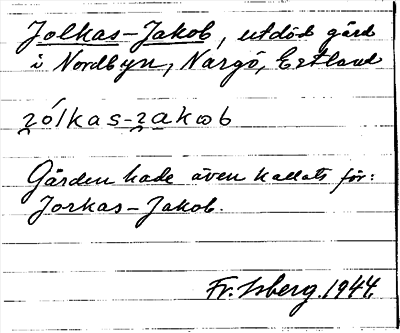 Jolkas-Jakob, utdöd gård
i Nordbyn, Nargö, Estland
jólkas-jakob
Gården hade även kallats för:
Jorkas-Jakob.
Fr. Isberg. 1944.